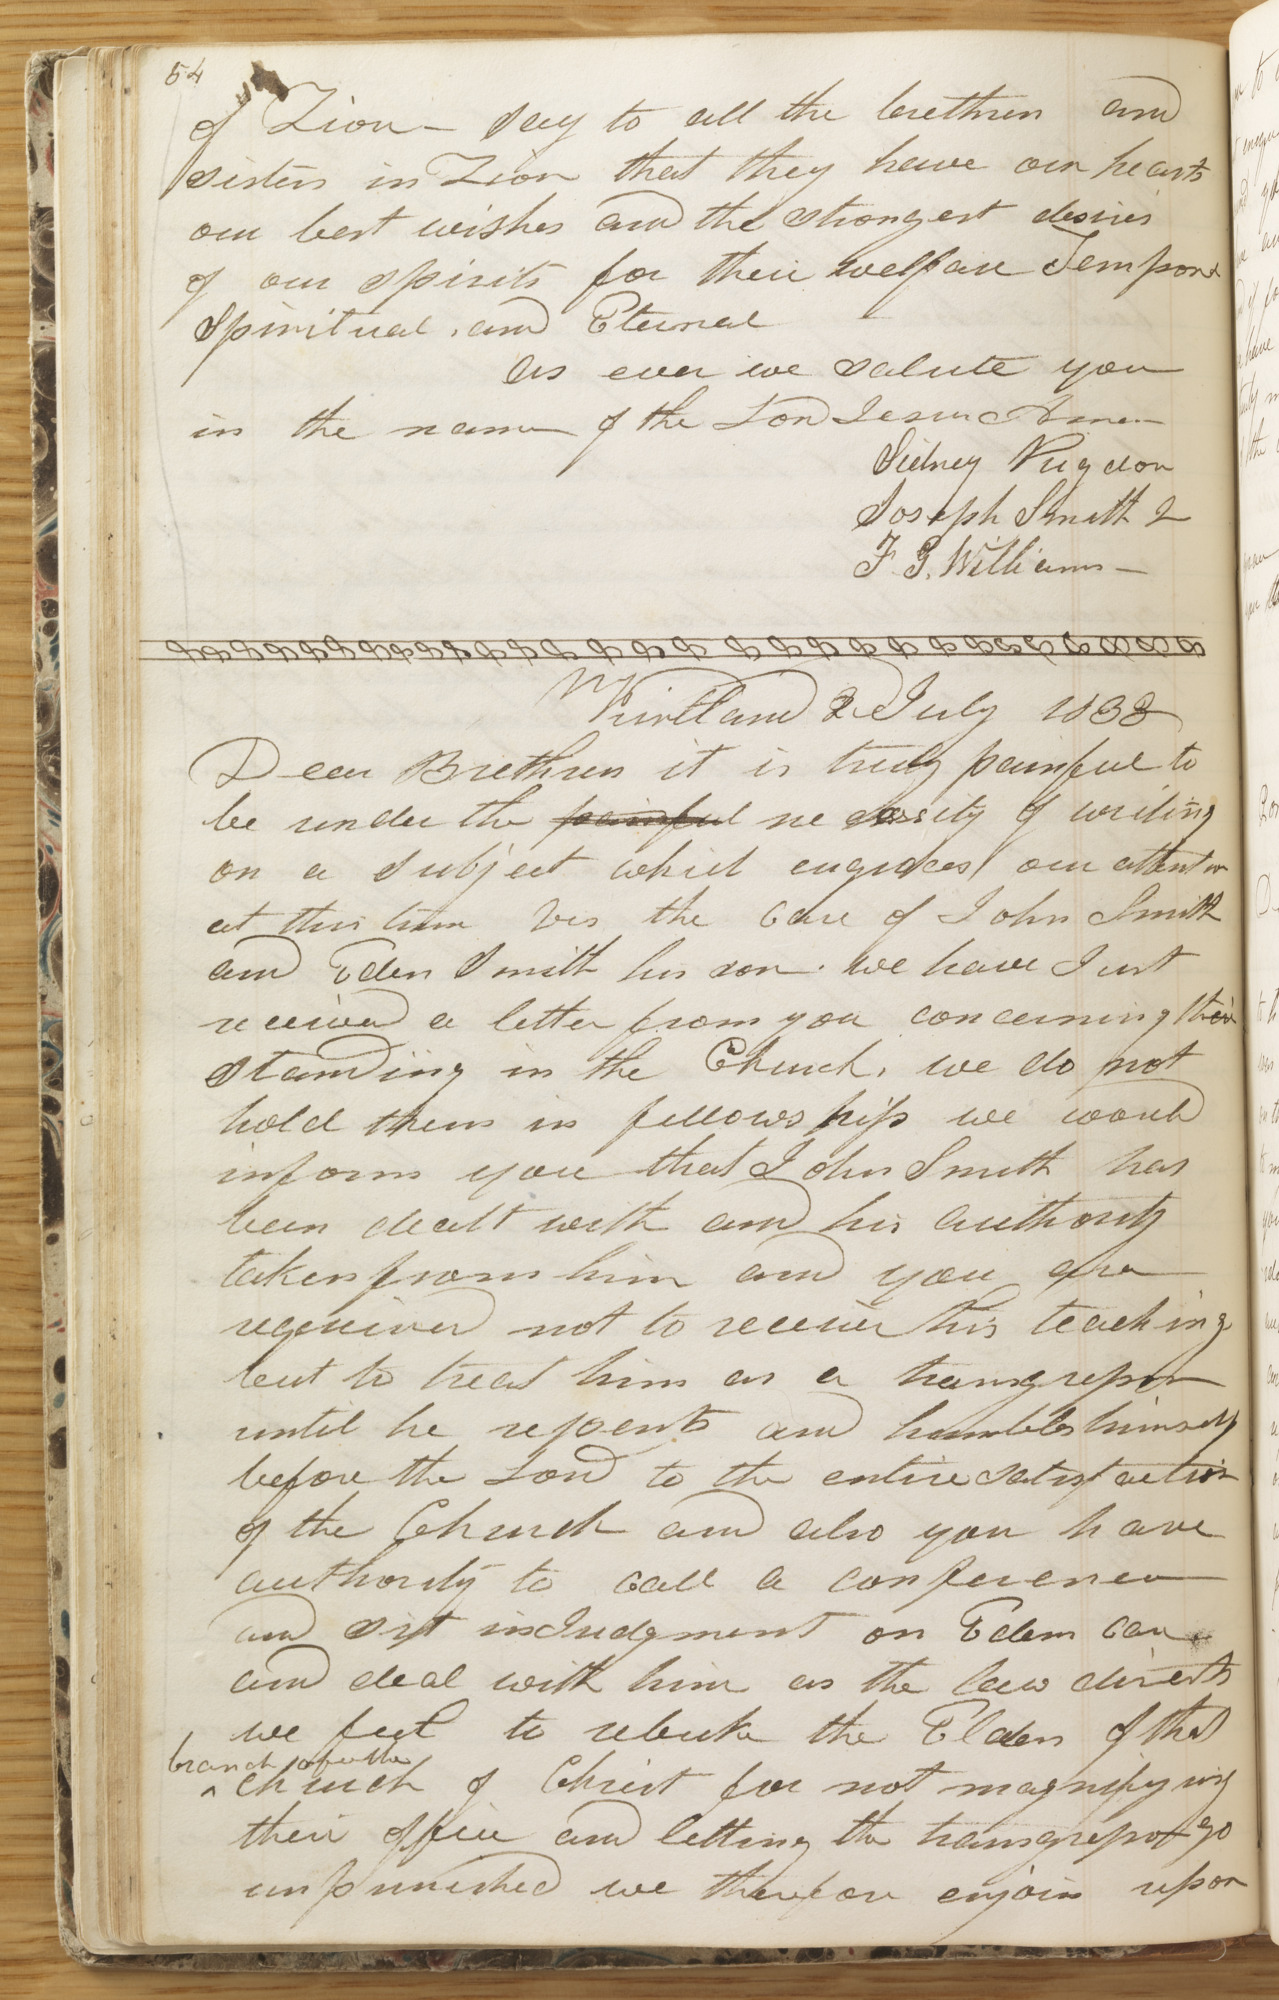 54
of Zion— say to all the brethren and
sisters in Zion that they have our hearts
our best wishes and the strongest desires
of our spirits for their welfare Temporal
Spiritual, and Eternal
as ever we salute you
in the name of the Lord Jesus Amen—
Sidney Rigdon
Joseph Smith J
F. G. Williams—
Kirtland 2 July 1833
Dear Brethren it is truly painful to
be under the painful necessity of writing
on a subject which engrosses our attention
at this time viz the case of John Smith
and Eden Smith his son. we have Just
received a letter from you concerning their
standing in the Church, we do not
hold them in fellowship we would
inform you that John Smith has
been dealt with and his authority
taken from him and you are
required not to receive his teaching
but to treat him as a transgressor
until he repents and humbles himself
before the Lord to the entire satisfaction
of the Church and also you have
authority to call a conference
and sit in Judgment on Edem case
and deal with him as the law directs
we feel to rebuke the Elders of that
branch of the
^ church of Christ for not magnifying
their office and letting the transgressor go
unpunished we therefore enjoin upon